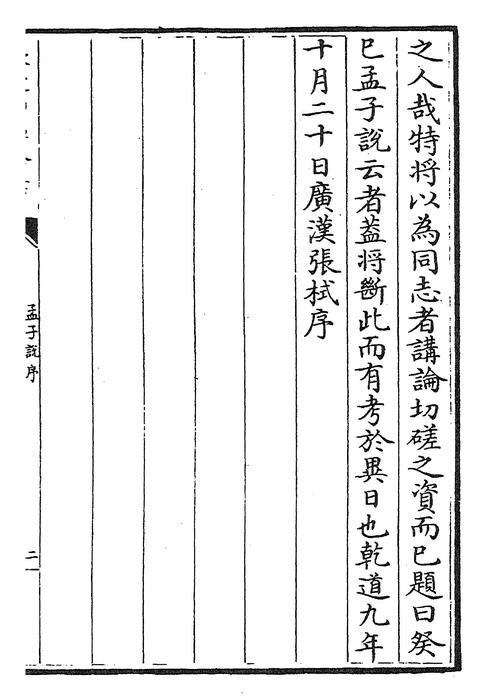 之人哉特將以為同志者講論切磋之資而已題曰癸
巳孟子說云者葢將斷此而有考於異日也乾道九年
十月二十日廣漢張栻序
孟子說序
二